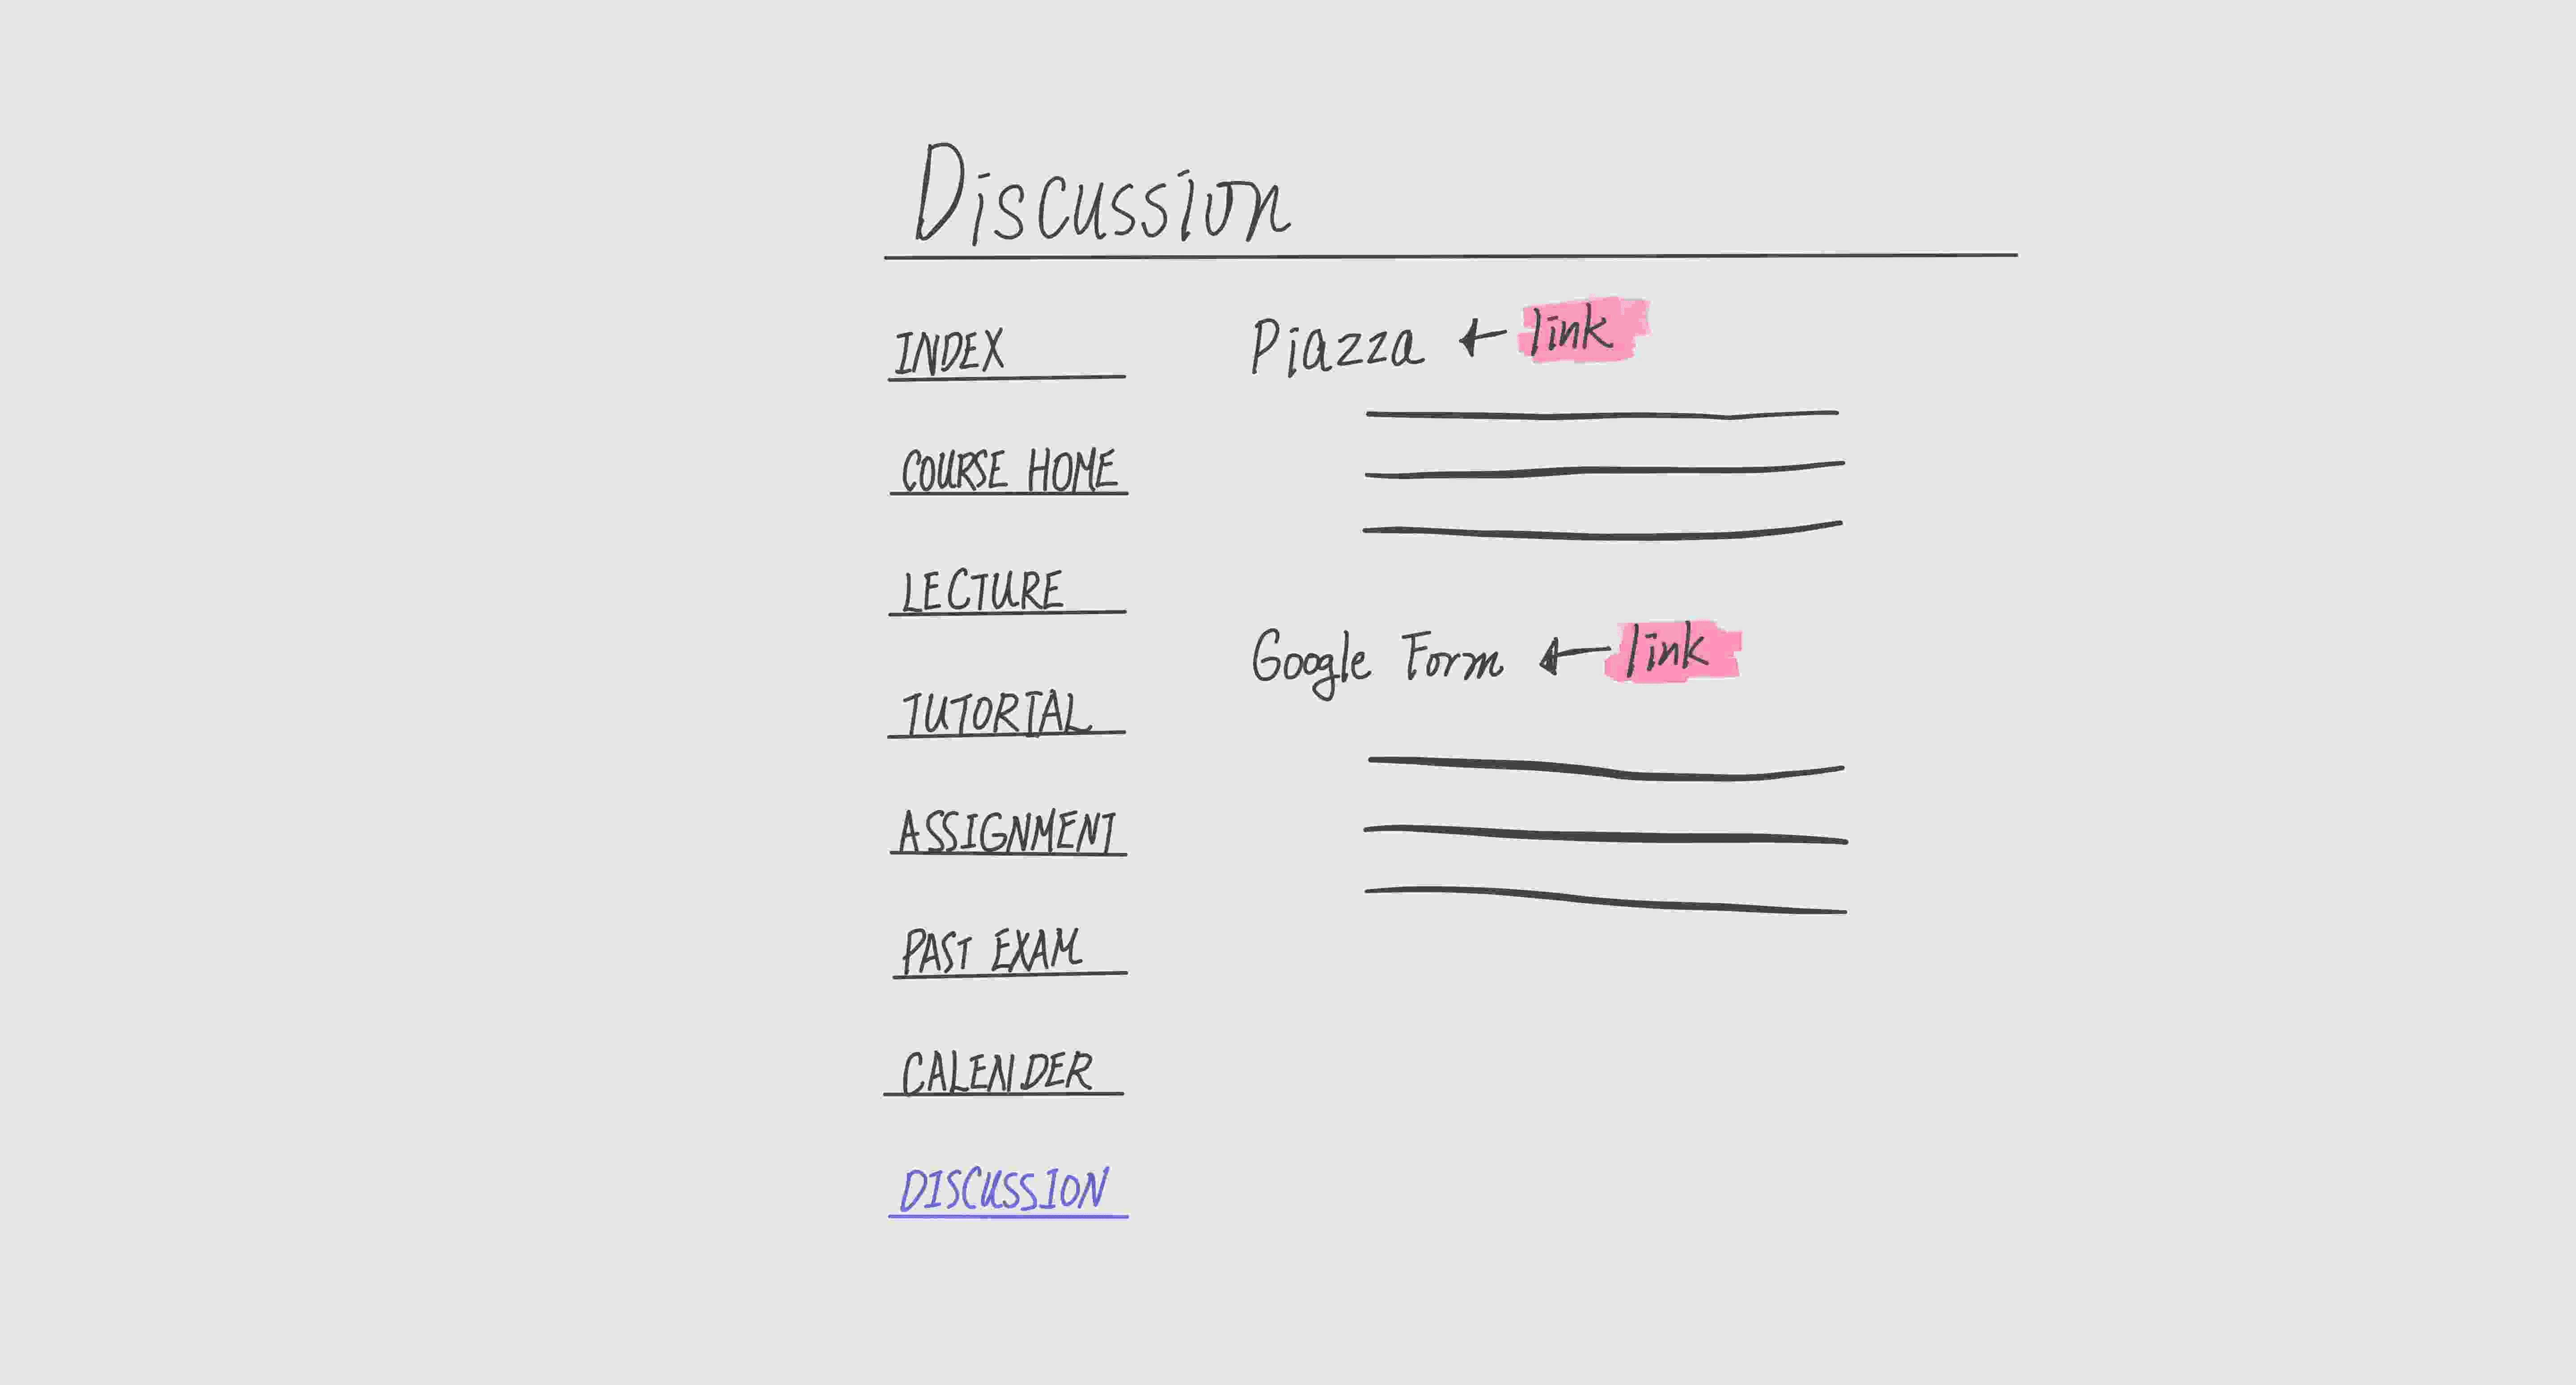 Discussion
INDEX
COURSE HOME
LECTURE
TUTORIAL
ASSIGNMENT
PAST EXAM
CALENDER
DISCUSSION
Piazza ← link
Google Form ← link